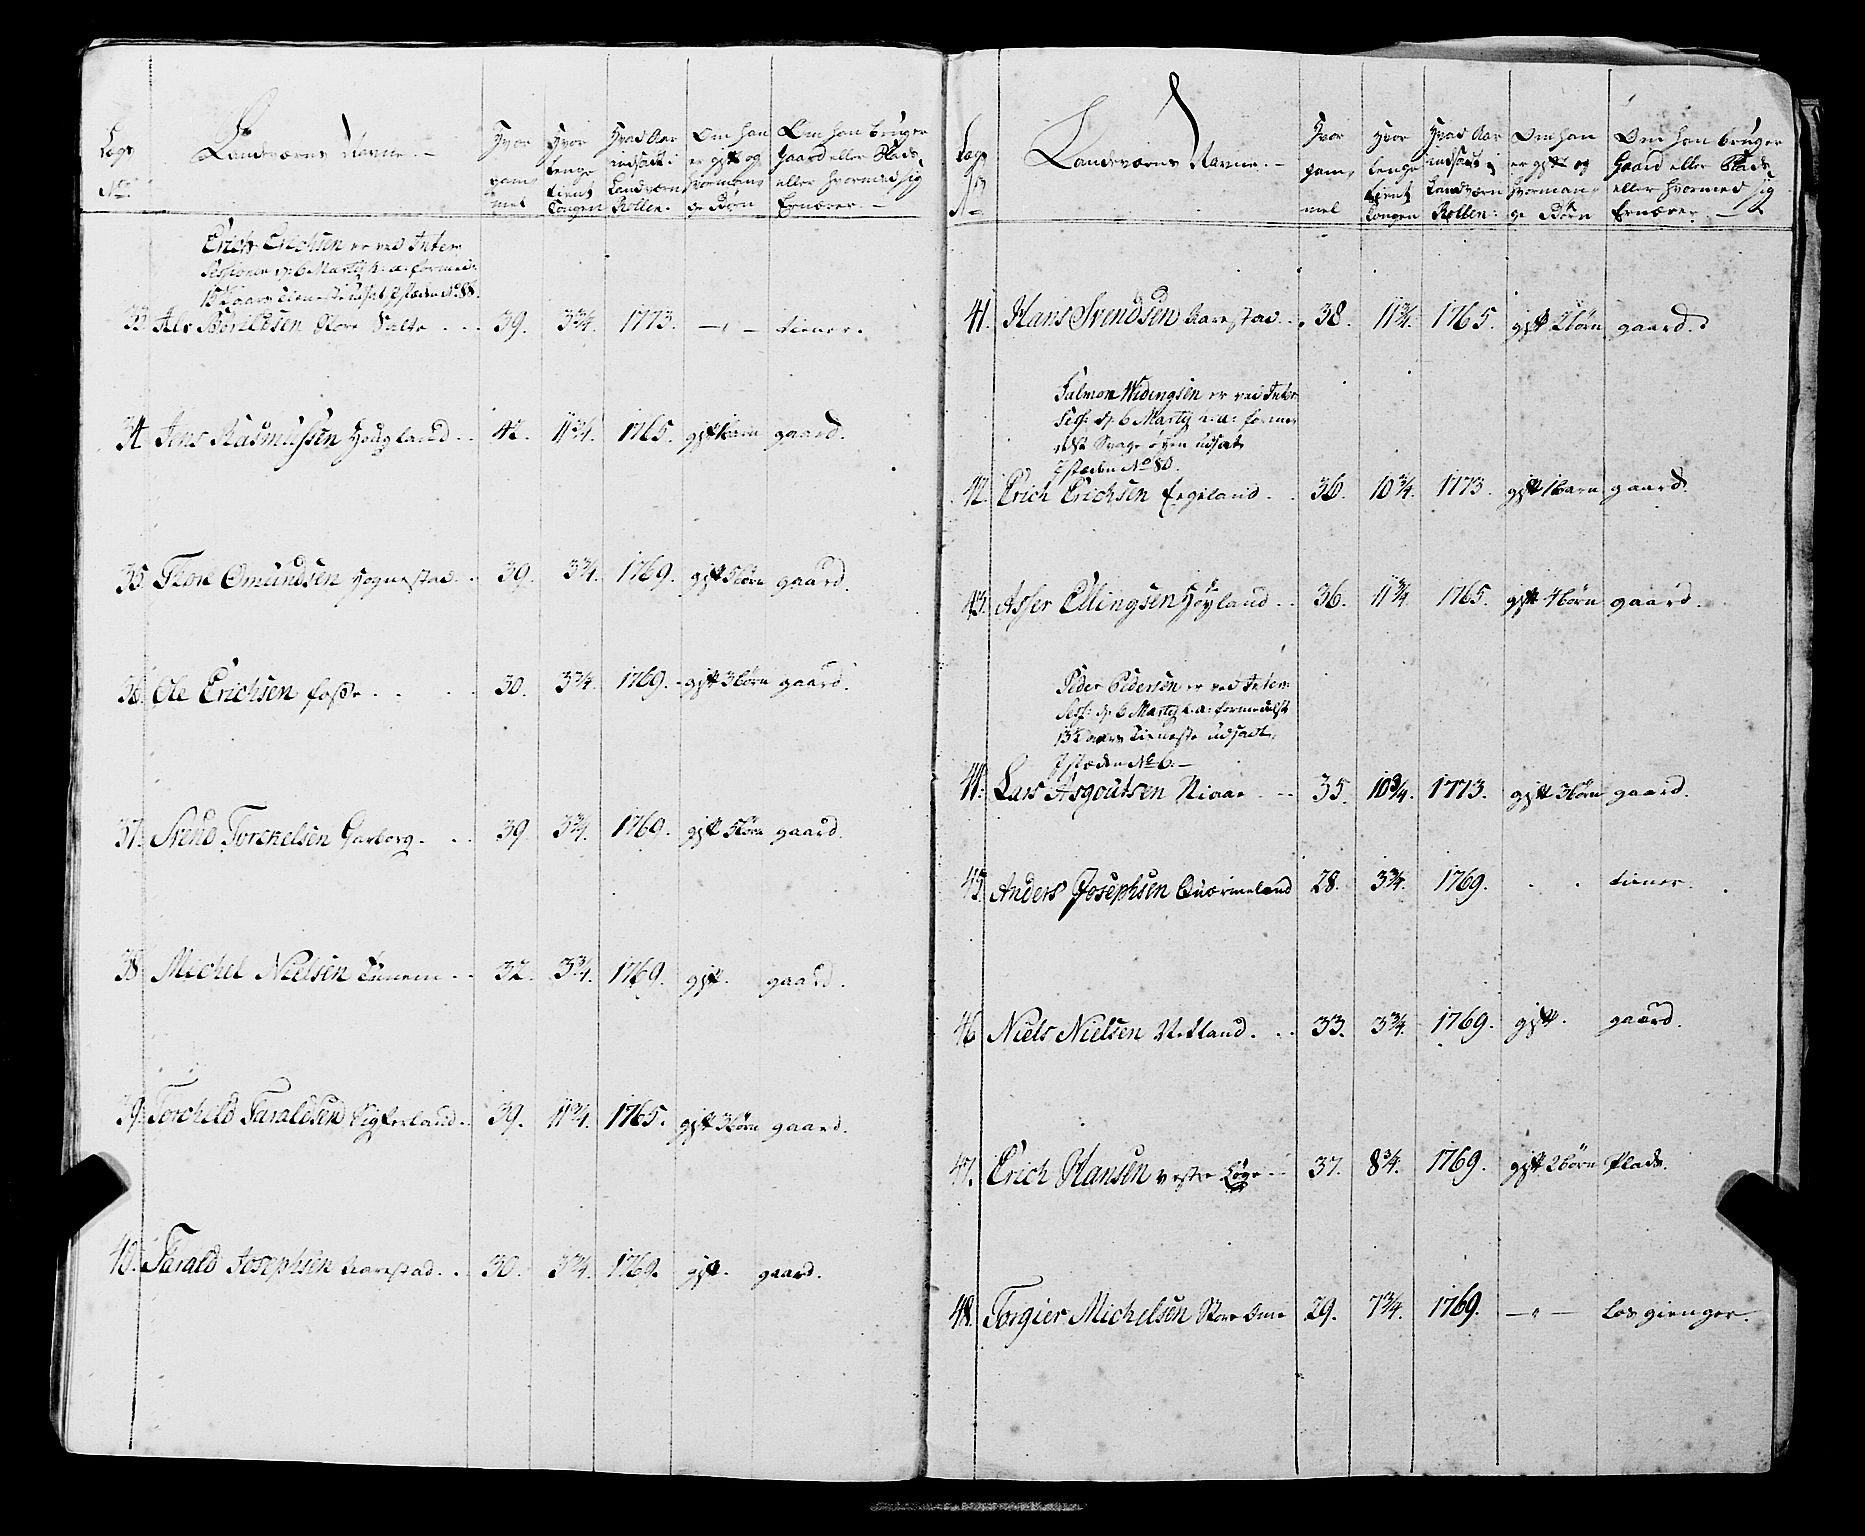 Lægs No. Landværns Navne. — Hvor gammel Hvor længe tient Kongen Hvad Aar indsadt i Landværn Rollen. Om han er gift og hvormange Børn Om han bruger Gaard eller Plads, eller hvormed sig Ernærer. —
Erich Erichsen er ved Inter
Sessionen d: 6 Marty h: a: formed:
aars tieneste udsat, I stæden No 88.
33. Als Bórildsen Store Salte . . . 39. 3¾. 1773. — „ — tiener.
34. Jens Rasmussen Hougland . . 42. 11¾. 1765. gift 1 barn gaard.
35. Thore Omundsen Hognestad . . 39. 3¾. 1769. gift 5 børn gaard.
36. Ole Erichsen fosse . . . 30. 3¾. 1769. gift 3 børn gaard.
37. Svend Torckelsen Garborg . . . 39. 3¾. 1769. gift 5 børn gaard.
38. Michel Nielsen Tunem . . 32. 3¾. 1769. gift. gaard.
39. Torchild Taraldsen Sigferland . . 39. 11¾. 1765. gift 3 børn gaard.
40. Tarald Josephsen Aarestad . . 30. 3¾. 1769. gift. gaard.
Lægs No Landværns Navne. — Hvor gammel Hvor længe tient Kongen Hvad Aar indsadt i Landværn Rollen: Om han er gift og hvormange Børn Om han bruger Gaard eller Plads eller hvormed sig Ernærer. —
41. Hans Svendsen Aarestad . . 38. 11¾. 1765. gift 2 børn gaard.
Salmon Widingsen er ved Inter
Sess: d: 6 Marty h: a: forme
delst Svage øyen udsat
I stæden No 80.
42. Erich Erichsen Eegeland . . 36. 10¾. 1773. gift 1 barn gaard.
43. Asser Ellingsen Høyland . . 36. 11¾. 1765. gift 4 børn gaard.
Peder Pedersen er ved Inter
Sess: d: 6 Marty h: a: formedelst
aars tieneste udsadt,
I stæden No 6. —
44. Lars Asgoutsen Niaae . . . 35. 10¾. 1773. gift 3 børn gaard.
45. Anders Josephsen Quærmeland 28. 3¾. 1769. . . tiener.
46. Niels Nielsen Vetland . . . 33. 3¾. 1769. gift. gaard.
47. Erich Hansen vestre Lÿge . . 37. 8¾. 1769. gift 2 børn Plads.
48. Torgier Michelsen Store Ome 29. 7¾. 1769. — „ — Løs gienger.